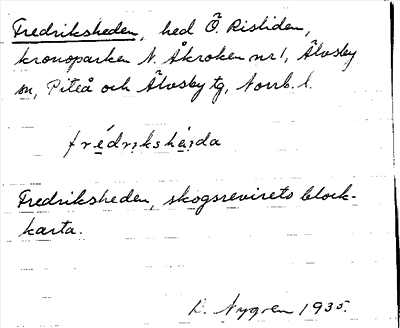 Fredriksheden, hed Ö. Risliden,
kronoparken N. Åkroken nr 1, Älvsby
sn, Piteå och Älvsby tg, Norrb. l.
frédrikshéda
Fredriksheden, skogsrevirets block-
karta.
D. Nygren 1935.